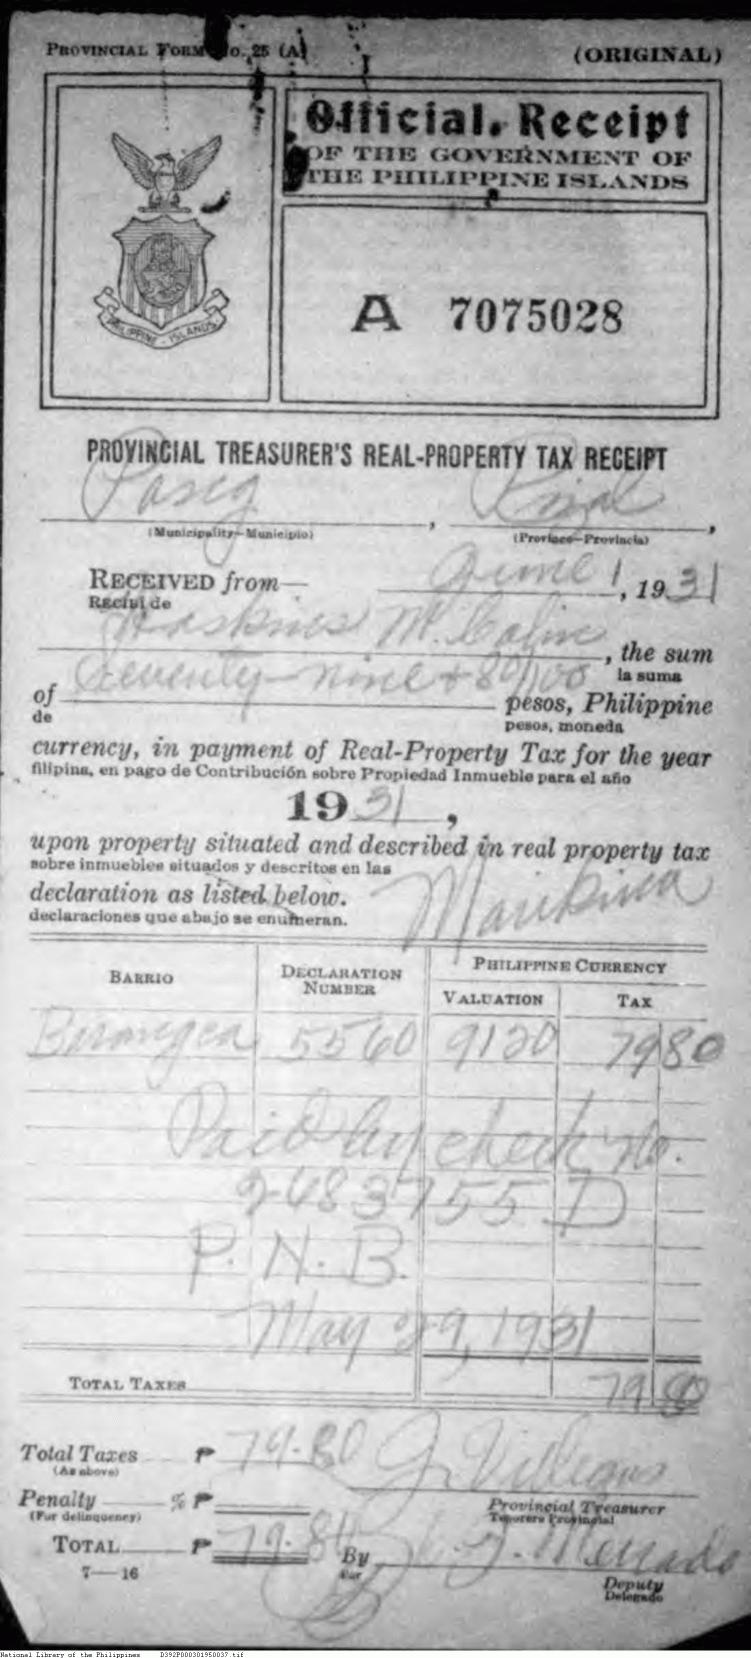 PROVINCIAL FORM No. 25 (A)
(ORIGINAL)
Official Receipt
OF THE GOVERNMENT OF
THE PHILIPPINE ISLANDS
PHILIPPINE - ISLANDS
A 7075028
PROVINCIAL TREASURER'S REAL-PROPERTY TAX RECEIPT
Pasig, Rizal,
(Municipality—Municipio) (Province—Provincia)
RECEIVED from— June 1, 1931
Recibí de
Haskins M. Colin, the sum
la suma
of Seventy-nine + 80/100 pesos, Philippine
de pesos, moneda
currency, in payment of Real-Property Tax for the year
filipina, en pago de Contribución sobre Propiedad Inmueble para el año
1931,
upon property situated and described in real property tax
sobre inmuebles situados y descritos en las
declaration as listed below. Marikina
declaraciones que abajo se enumeran.
BARRIO DECLARATION NUMBER PHILIPPINE CURRENCY
VALUATION TAX
Barangca 5560 9120 79 80
Paid by check No.
2483755 D
P. N. B.
May 29, 1931
TOTAL TAXES 79 80
Total Taxes ₱ 79.80 J. Villegas
(As above)
Penalty % ₱ Provincial Treasurer
(For delinquency) Tesorero Provincial
TOTAL ₱ 79.80 By
Por
7—16 Deputy
Delegado
National Library of the Philippines D392P000301950037.tif